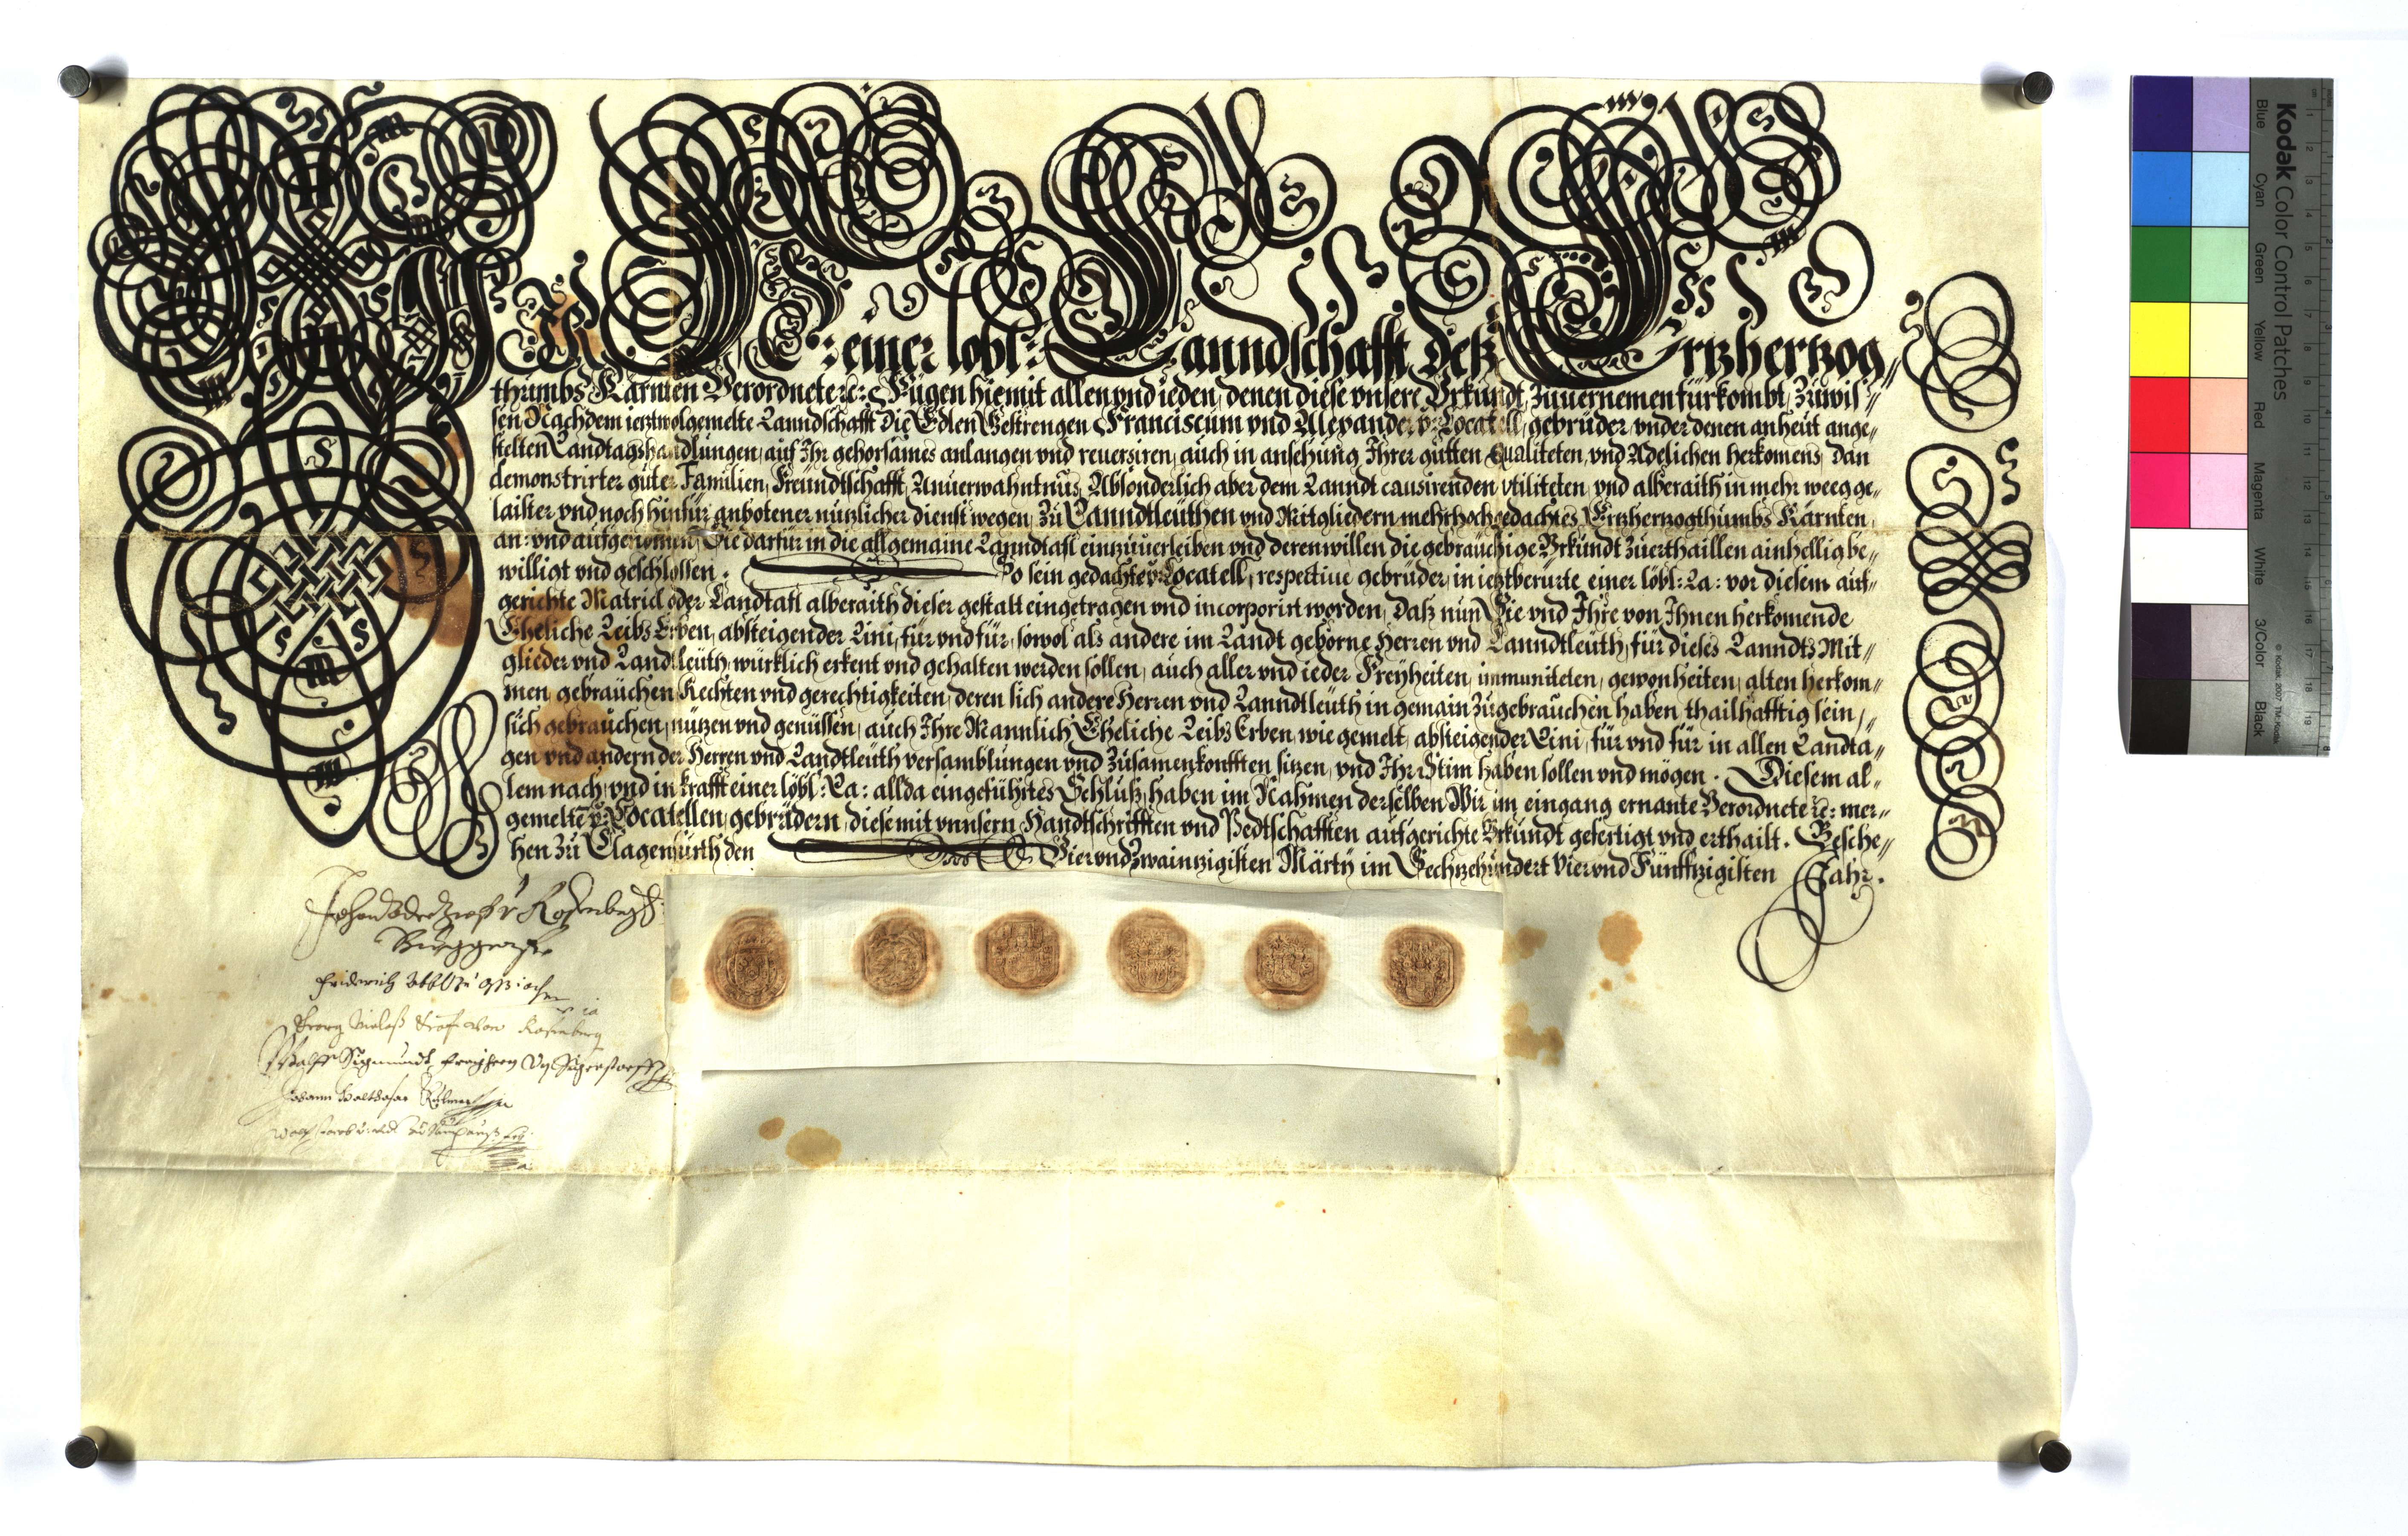 Wir N: Er: einer löbl: Lanndschafft deß Ertzhertzog„
thumbs Kärnten Verordnete ec: Fügen hiemit allen vnd ieden, denen diese vnsere Vrkundt, zuuernemen fürkombt, zuwis„
sen Nachdem ieztwolgemelte Lanndschafft die Edlen Gestrengen Franciscum vnd Alexander v: Locatell, gebrüder vnder denen anheüt ange„
stelten Landtagshandlungen, auf Ihr gehorsames anlangen vnd reuersiren, auch in ansehung Ihrer gutten Qualiteten, vnd Adelichen herkomens, dan
demonstrirter guter Familien, Freündtschafft, Anuerwahntnus, Absonderlich aber dem Lanndt causirenden vtiliteten, vnd alberaith in mehr weeg ge„
laister vnd noch hinfür anbotener nuzlicher dienst wegen, zu Lanndtleüthen vnd Mitgliedern mehrhochgedachtes Ertzhertzogthumbs Kärnten,
an: vnd aufgenomen, Sie darfür in die allgemaine Lanndtafl einzuuerleiben vnd derenwillen die gebreüchige Vrkundt zuerthaillen ainhellig be„
willigt vnd geschlossen. So sein gedachte v: Locatell, respectiue gebrüder, in ieztberürte einer löbl: La: vor diesem auf„
gerichte Matricl oder Landtafl alberaith dieser gestalt eingetragen vnd incorporirt worden, daß nun Sie vnd Ihre von Ihnen herkomende
Eheliche Leibs Erben, absteigender Lini, für vnd für, sowol als andere im Landt geborne Herren vnd Lanndtleüth, für dieses Lanndts Mit„
glieder vnd Landtleüth, würklich erkent vnd gehalten werden sollen, auch aller vnd ieder Freyheiten, immuniteten, gewonheiten, alten herkom„
men, gebräuchen, Rechten vnd gerechtigkeiten, deren sich andere Herren vnd Lanndtleüth in gemain zugebrauchen haben, thailhafftig sein,
sich gebrauchen, nuzen vnd genüssen, auch Ihre Mannlich Eheliche Leibs Erben, wie gemelt, absteigender Lini, für vnd für in allen Landta„
gen vnd andern der Herren vnd Landtleüth versamblungen vnd zusamenkonfften sizen, vnd Ihr Stim haben sollen vnd mögen. Diesem al„
lem nach, vnd in krafft einer löbl: La: allda eingeführtes Schluß, haben im Nahmen derselben Wir im eingang ernante Verordnete ec: mer„
gemelte v: Locatellen, gebrüdern, diese mit vnnsern Handtschrifften vnd Pedtschafften aufgerichte Vrkundt gefertigt vnd erthailt. Besche„
hen zu Clagenfurth den Vierundzwainzigisten Märty im Sechzehundert Vier vnd Fünffzigisten Jahr.
Rosenberg
Burggraff
Friderich Abbt zu Ossiach
Georg Niclaß Graf von Rosenberg
Wolff Sigmundt Freyherr
Johann Balthasar
Kodak Color Control Patches
Blue Cyan Green Yellow Red Magenta White 3/Color Black
© Kodak, 2007 TM: Kodak